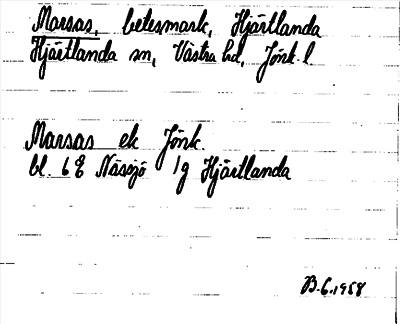 Marsas, betesmark, Hjärtlanda
Hjärtlanda sn, Västra hd, Jönk. l.
Marsas ek Jönk.
bl. 6 E Nässjö 1g Hjärtlanda
B.G. 1958